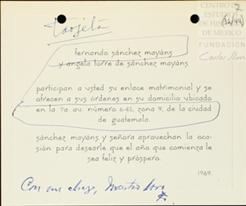 Tarjeta
CENTRO DE
ESTUDIOS
DE MEXICO
FUNDACIÓN
fernando sánchez mayáns
y angela torre de sánchez mayáns
participan a usted su enlace matrimonial y se
ofrecen a sus órdenes en su domicilio ubicado
en la 7a av número zona 9, de la ciudad
de guatemala.
sánchez mayáns, y señora aprovechan la oca
sión para desearle que el año que comienza le
sea feliz y próspero.
1969.
Con un abrazo,